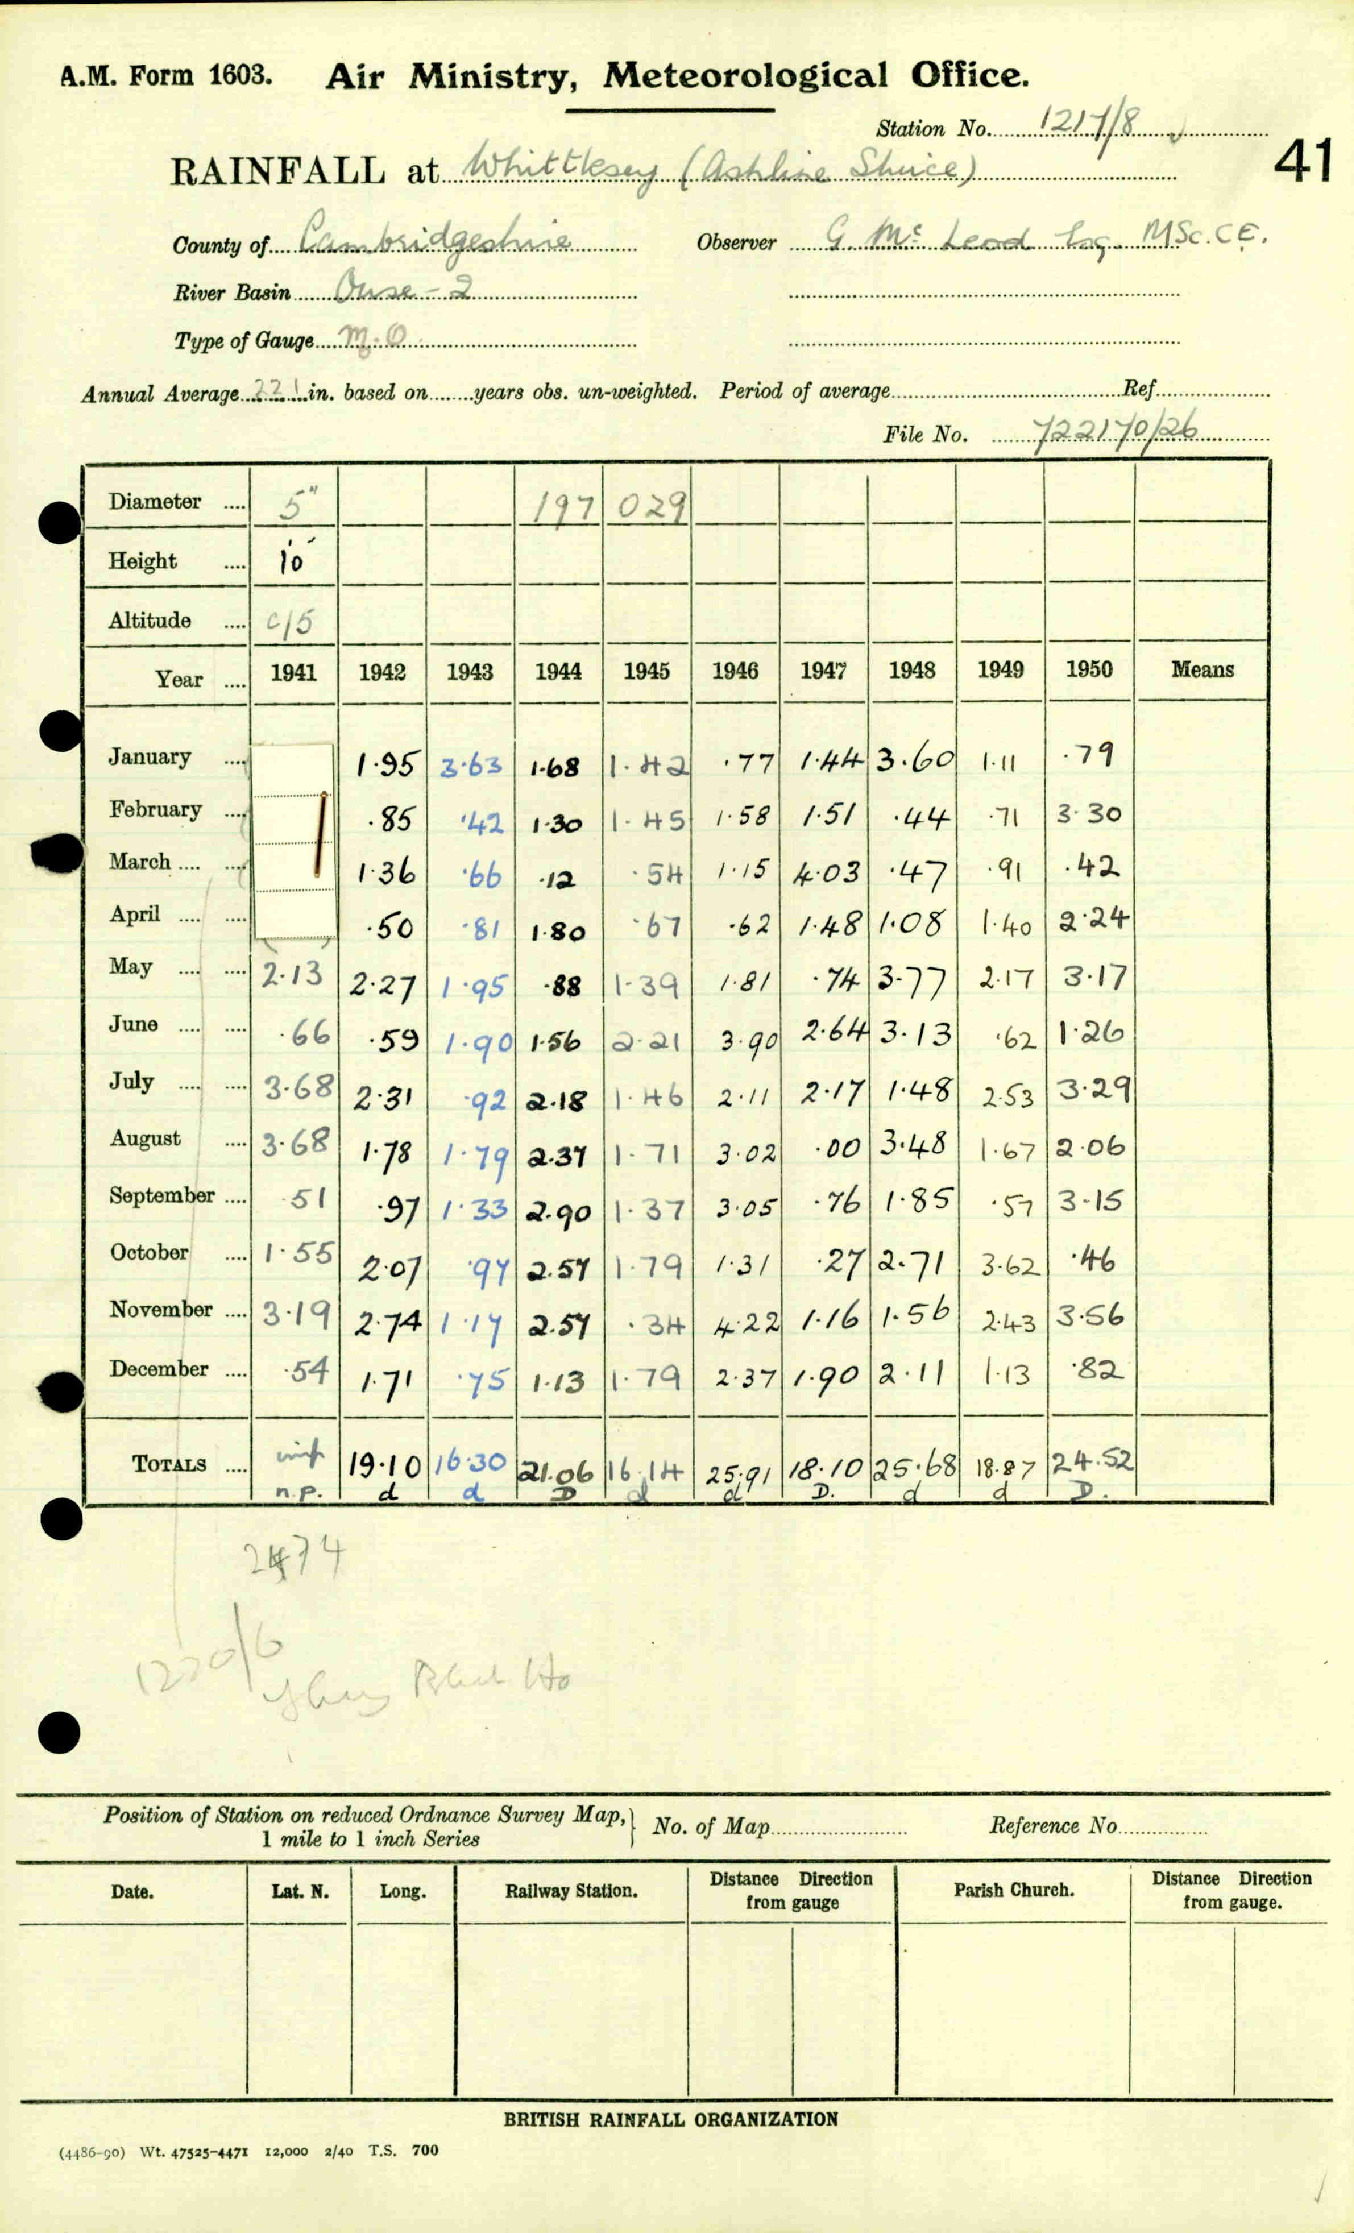 A.M. Form 1603. Air Ministry, Meteorological Office.
Station No. 1217/8
41
RAINFALL at Whittlesey (Ashline Sluice)
County of Cambridgeshire Observer G. Mc Leod Esq. MSc. C.E.
River Basin Ouse - 2
Type of Gauge M.O
Annual Average 22.1 in. based on years obs. un-weighted. Period of average Ref
File No. 722170/26
Diameter .... 5" 197 029
Height .... 10
Altitude .... c15
Year .... 1941 1942 1943 1944 1945 1946 1947 1948 1949 1950 Means
January .... 1.95 3.63 1.68 1.42 .77 1.44 3.60 1.11 .79
February .... .85 .42 1.30 1.45 1.58 1.51 .44 .71 3.30
March .... .... 1.36 .66 .12 .54 1.15 4.03 .47 .91 .42
April .... .... .50 .81 1.80 .67 .62 1.48 1.08 1.40 2.24
May .... .... 2.13 2.27 1.95 .88 1.39 1.81 .74 3.77 2.17 3.17
June .... .... .66 .59 1.90 1.56 2.21 3.90 2.64 3.13 .62 1.26
July .... .... 3.68 2.31 .92 2.18 1.46 2.11 2.17 1.48 2.53 3.29
August .... 3.68 1.78 1.79 2.37 1.71 3.02 .00 3.48 1.67 2.06
September .... .51 .97 1.33 2.90 1.37 3.05 .76 1.85 .57 3.15
October .... 1.55 2.07 .97 2.57 1.79 1.31 .27 2.71 3.62 .46
November .... 3.19 2.74 1.17 2.57 .34 4.22 1.16 1.56 2.43 3.56
December .... .54 1.71 .75 1.13 1.79 2.37 1.90 2.11 1.13 .82
TOTALS .... 19.10 16.30 21.06 16.14 25.91 18.10 25.68 18.87 24.52
n.p. d d D d d D. d d D.
2474
1220/6
Position of Station on reduced Ordnance Survey Map, No. of Map Reference No
1 mile to 1 inch Series
Date. Lat. N. Long. Railway Station. Distance Direction from gauge Parish Church. Distance Direction from gauge.
BRITISH RAINFALL ORGANIZATION
(4486-90) Wt. 47525-4471 12,000 2/40 T.S. 700